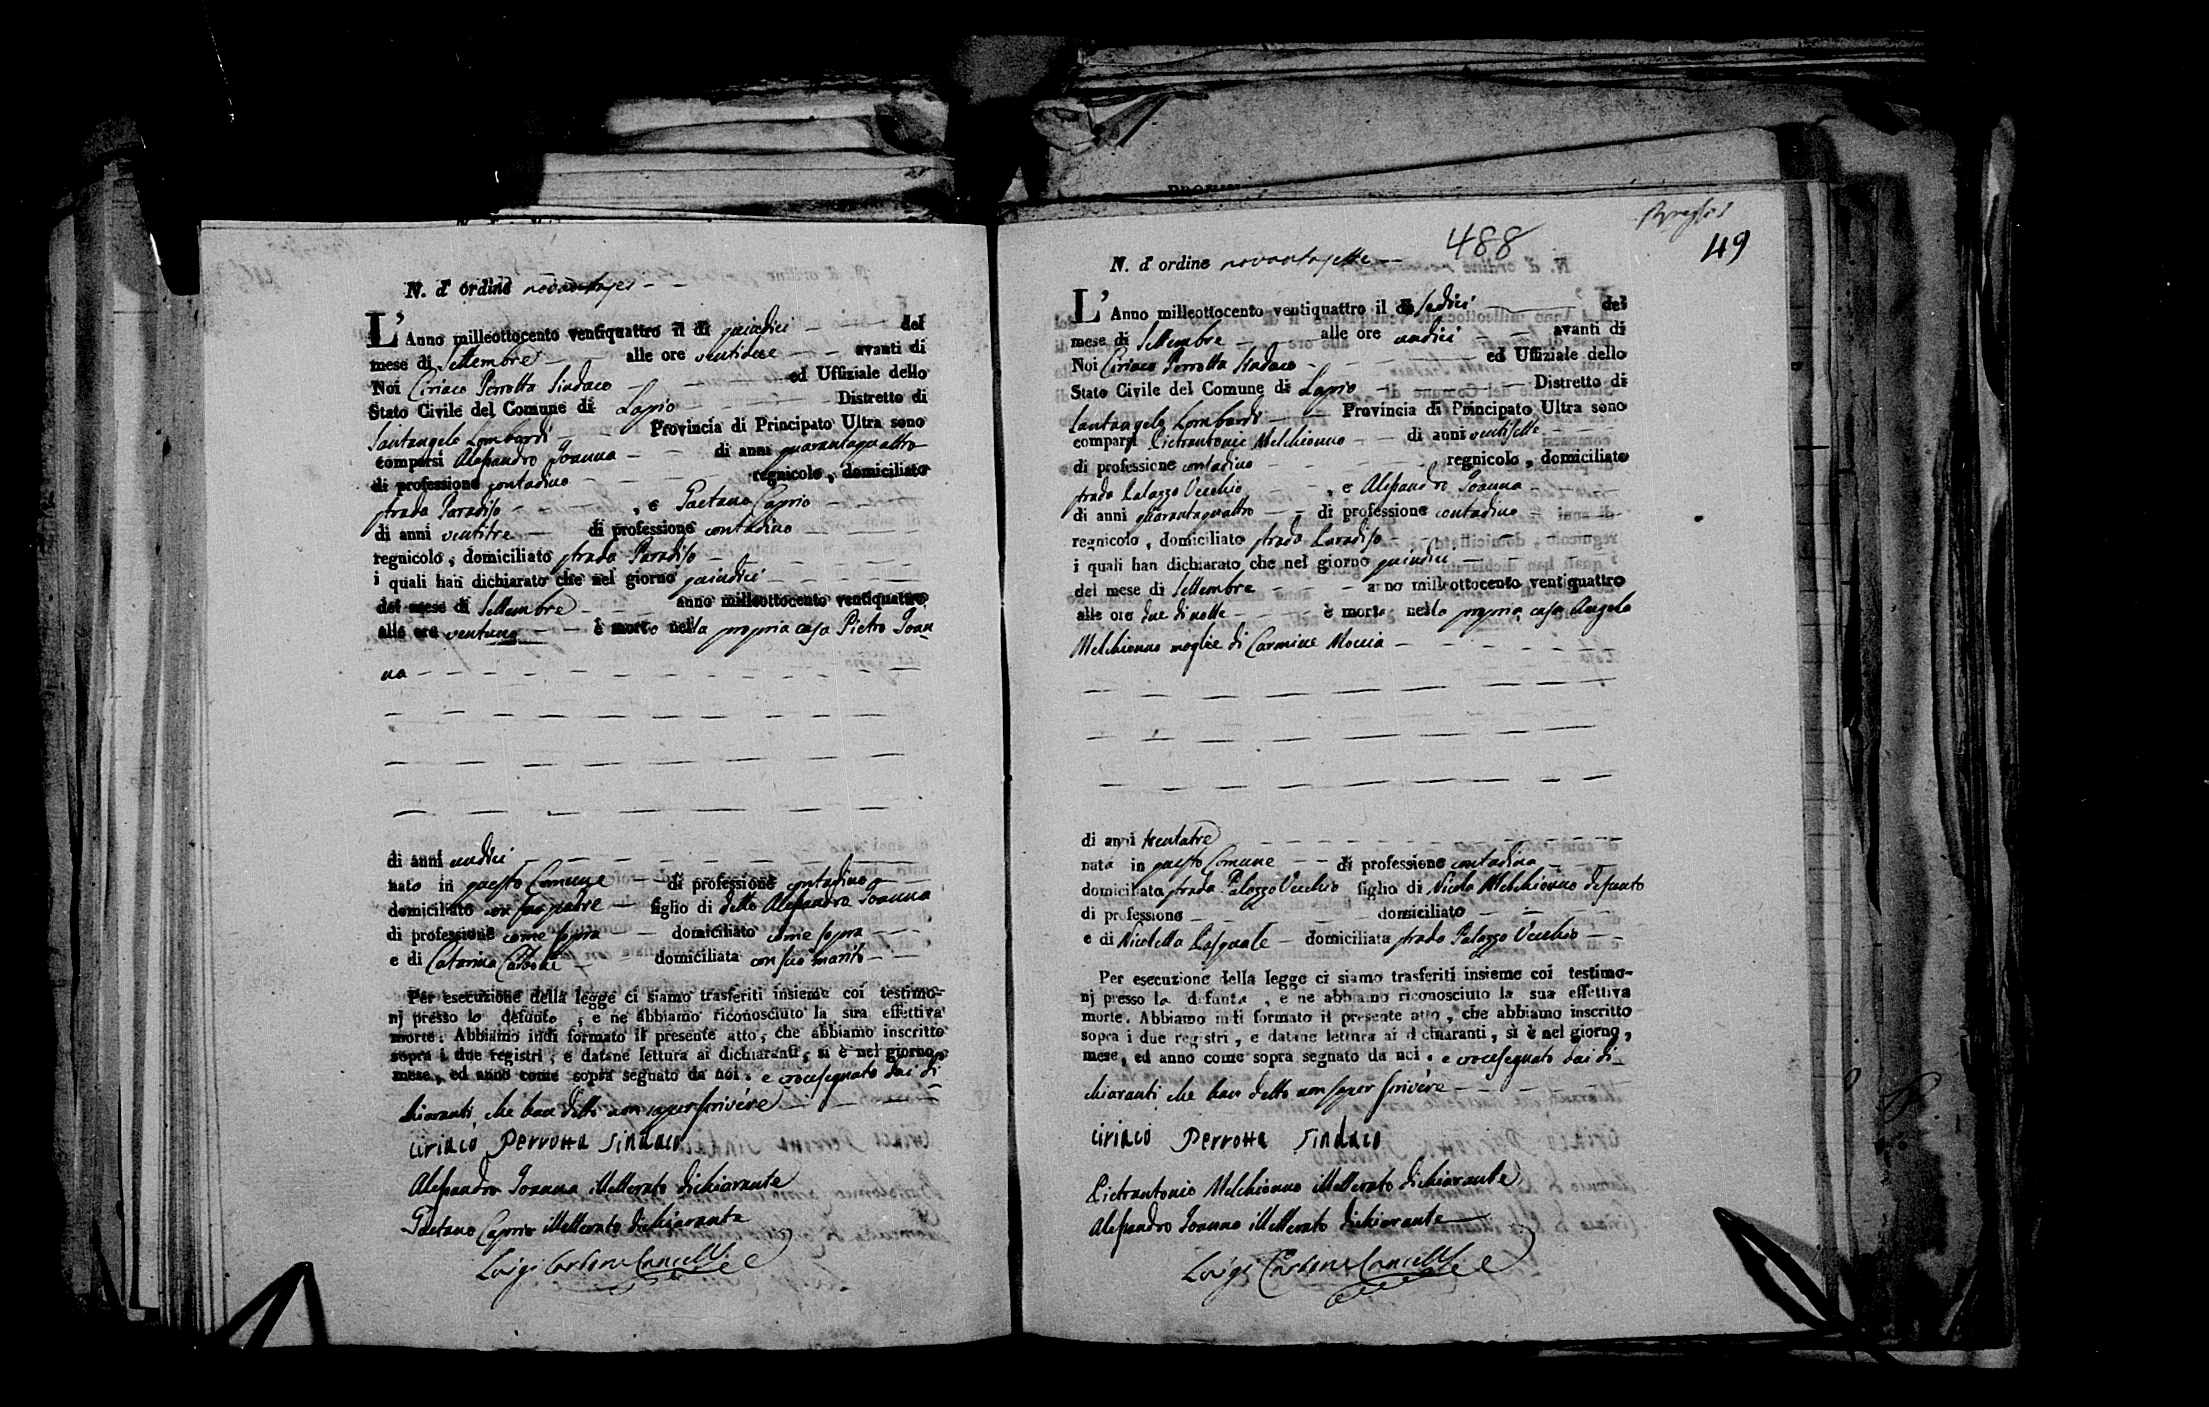 N. d' ordine novantasei
L' Anno milleottocento ventiquattro il dì quindici del
mese di Settembre alle ore ventidue avanti di
Noi Ciriaco Perrotta Sindaco ed Uffiziale dello
Stato Civile del Comune di Lapio Distretto di
Santangelo Lombardi Provincia di Principato Ultra sono
comparsi Alessandro Joanna di anni quarantaquattro
di professione contadino regnicolo, domiciliato
strada Paradiso , e Gaetano Caprio
di anni ventitre di professione contadino
regnicolo, domiciliato strada Paradiso
i quali han dichiarato che nel giorno quindici
del mese di Settembre anno milleottocento ventiquattro
alle ore ventuno è morto nella propria casa Pietro Joan
na
di anni undici
nato in questo Comune di professione contadino
domiciliato con suo padre figlio di detto Alessandro Joanna
di professione come sopra domiciliato come sopra
e di Catarina Carbone domiciliata con suo marito
Per esecuzione della legge ci siamo trasferiti insieme coi testimo-
nj presso lo defunto , e ne abbiamo riconosciuto la sua effettiva
morte. Abbiamo indi formato il presente atto, che abbiamo inscritto
sopra i due registri, e datane lettura ai dichiaranti, si è nel giorno,
mese, ed anno come sopra segnato da noi. e crocesegnato dai di
chiaranti che han detto non saper scrivere
Ciriaco Perrotta Sindaco
Alessandro Joanna illetterato dichiarante
Gaetano Caprio illetterato dichiarante
Luigi Carbone Cancelle
488
49
N. d' ordine novantasette
L' Anno milleottocento ventiquattro il dì sedici del
mese di Settembre alle ore undici avanti di
Noi Ciriaco Perrotta Sindaco ed Uffiziale dello
Stato Civile del Comune di Lapio Distretto di
Santangelo Lombardi Provincia di Principato Ultra sono
comparsi Pietrantonio Melchionno di anni ventisette
di professione contadino regnicolo, domiciliato
strada Palazzo Vecchio , e Alessandro Joanna
di anni quarantaquattro di professione contadino
regnicolo, domiciliato strada Paradiso
i quali han dichiarato che nel giorno quindici
del mese di Settembre anno milleottocento ventiquattro
alle ore due di notte è morta nella propria casa Angela
Melchionno moglie di Carmine Moccia
di anni trentatre
nata in questo Comune di professione contadina
domiciliata strada Palazzo Vecchio figlio di Nicola Melchionno defunto
di professione domiciliato
e di Nicoletta Pasquale domiciliata strada Palazzo Vecchio
Per esecuzione della legge ci siamo trasferiti insieme coi testimo-
nj presso la defunta , e ne abbiamo riconosciuto la sua effettiva
morte. Abbiamo indi formato il presente atto, che abbiamo inscritto
sopra i due registri, e datane lettura ai dichiaranti, sì è nel giorno,
mese, ed anno come sopra segnato da noi. e crocesegnato dai di
chiaranti che han detto non saper scrivere
Ciriaco Perrotta Sindaco
Pietrantonio Melchionno illetterato dichiarante
Alessandro Joanna illetterato dichiarante
Luigi Carbone Cancelle